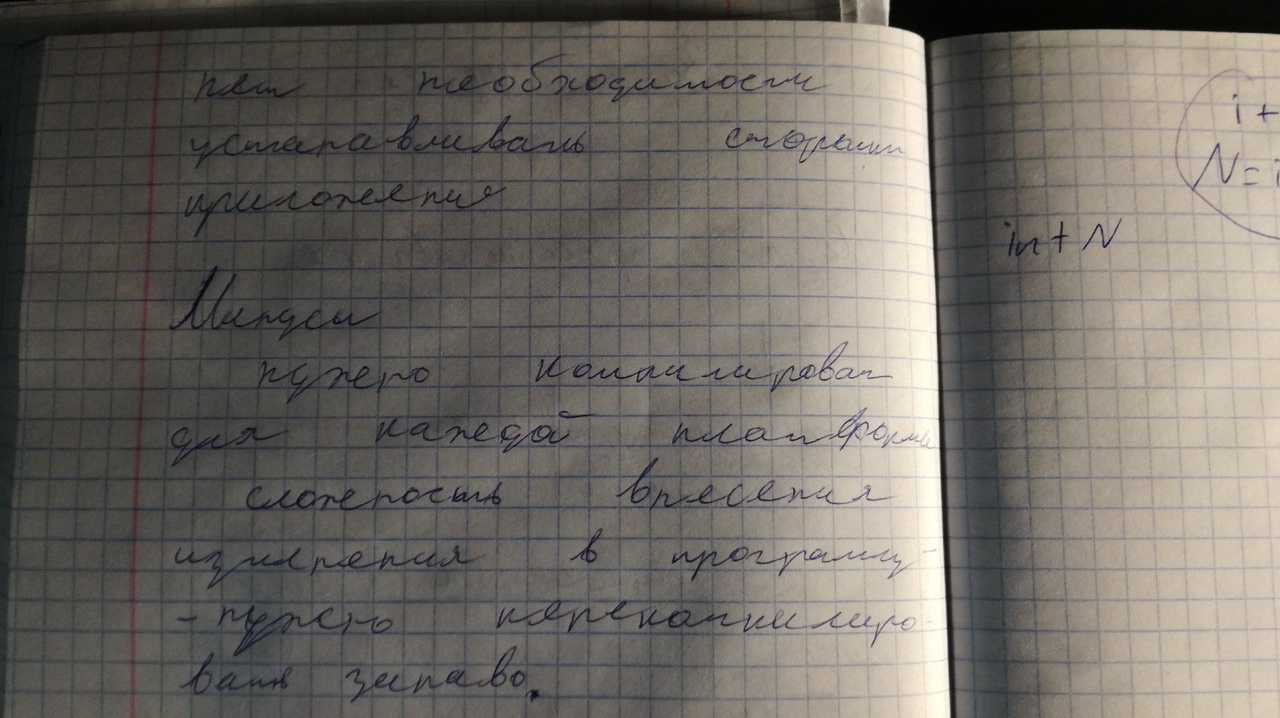 нет необходимости
устанавливать сторонн
приложения
Минусы
нужно компилироват
для каждой платформы
сложность внесения
изменения в програму-
- нужно перекомпилиро-
вать заново.
i +
N = i
in + N